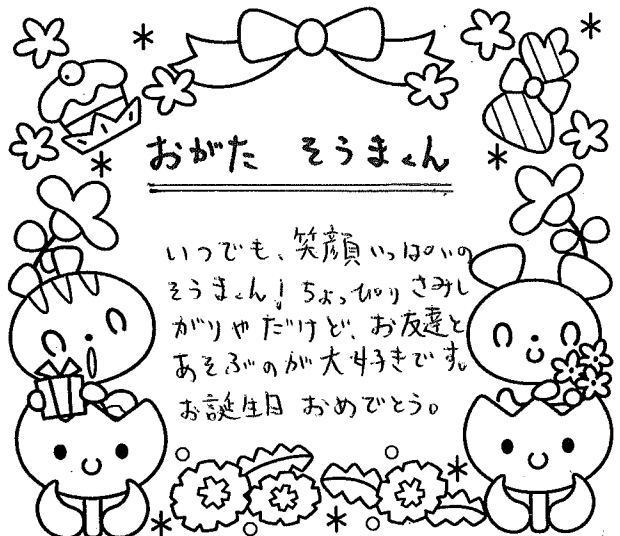 おがた そうまくん
いつでも、笑顔いっぱいの
そうまくん!ちょっぴりさみし
がりやだけど、お友達と
あそぶのが大好きです。
お誕生日 おめでとう。